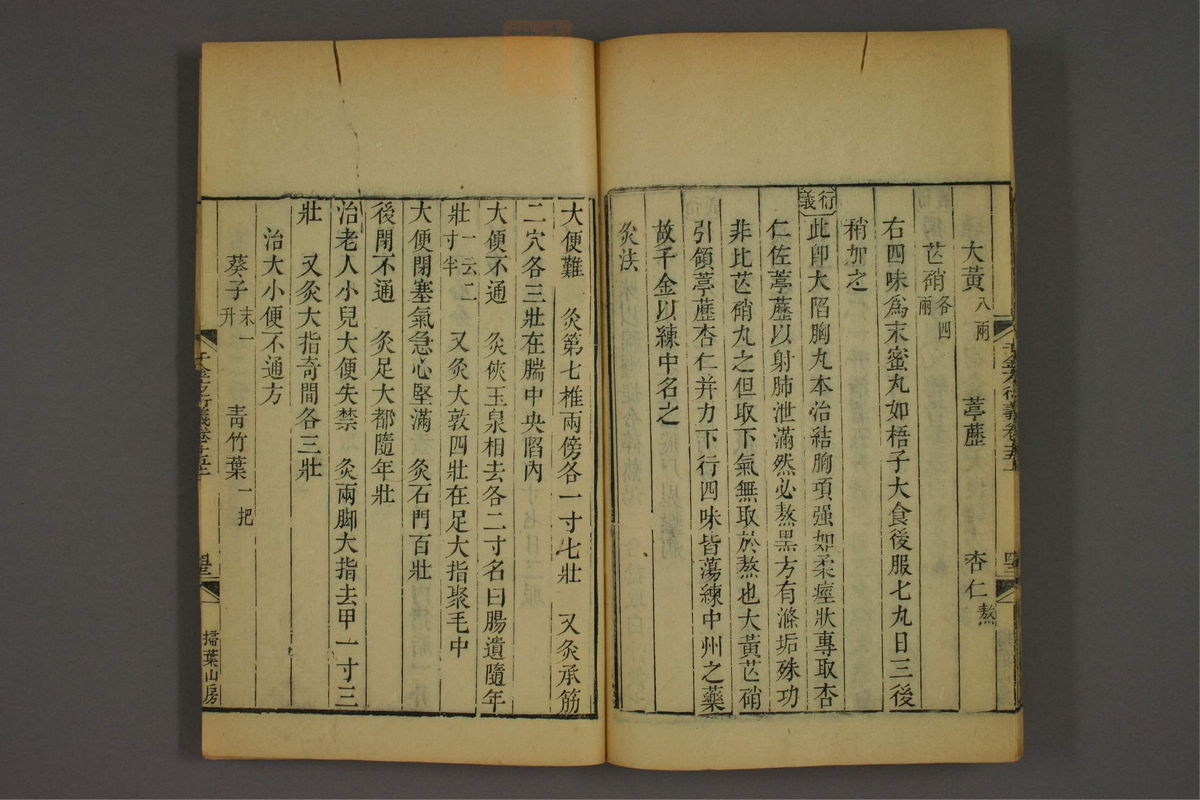 大黃八兩　葶藶　杏仁熬
芒硝各四兩
右四味爲末蜜丸如梧子大食後服七丸日三後
稍加之
衍義此卽大陷胸丸本治結胸項强如柔痙狀專取杏
仁佐葶藶以射肺泄滿然必熬黑方有滌垢殊功
非比芒硝丸之但取下氣無取於熬也大黃芒硝
引領葶藶杏仁并力下行四味皆蕩練中州之藥
故千金以練中名之
灸法
大便難　灸第七椎兩傍各一寸七壯　又灸承筋
二穴各三壯在腨中央陷內
大便不通　灸俠玉泉相去各二寸名曰腸遺隨年
壯一云二寸半　又灸大敦四壯在足大指聚毛中
大便閉塞氣急心堅滿　灸石門百壯
後閉不通　灸足大都隨年壯
治老人小兒大便失禁　灸兩脚大指去甲一寸三
壯　又灸大指奇間各三壯
治大小便不通方
葵子末一升　青竹葉一把
掃葉山房